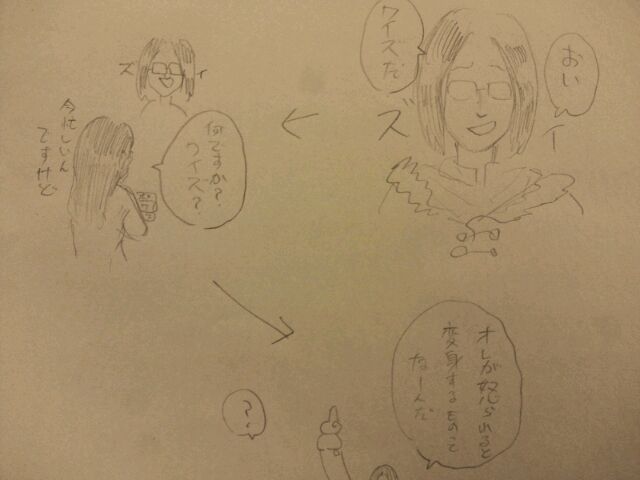 おい
クイズだ
ズ
イ
ズ
イ
何ですか?
クイズ?
今忙しいん
ですけど
オレが怒られると
変身するものって
なーんだ
?